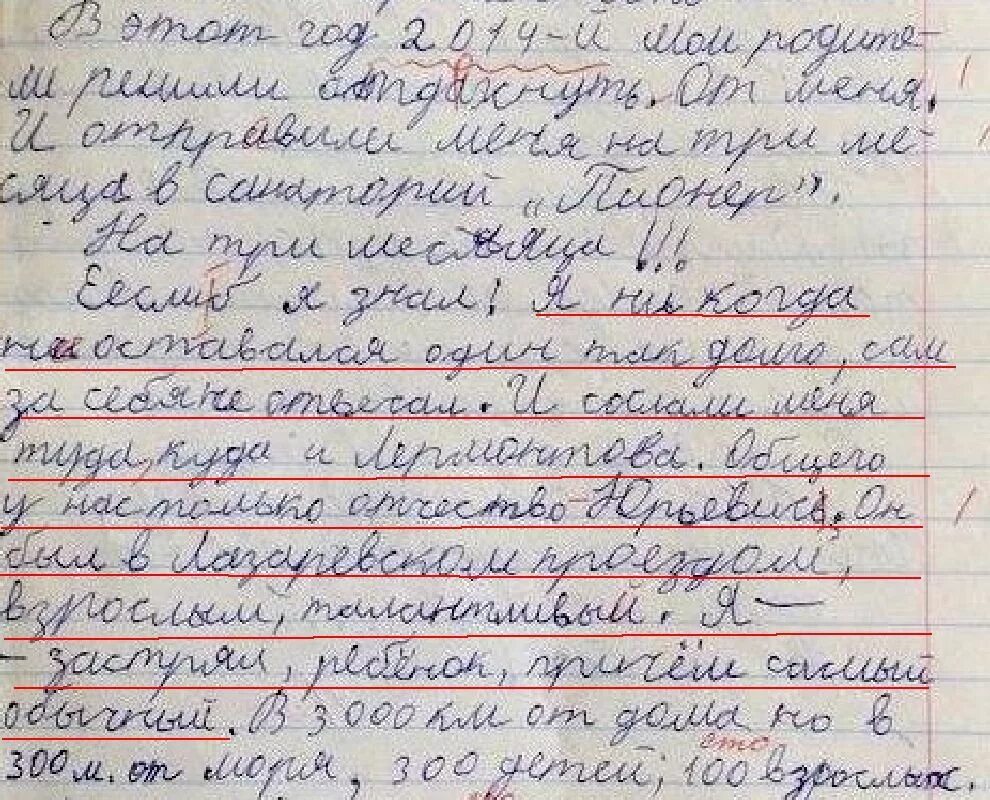 В этот год 2014-й мои родите-
ли решили отдохнуть. От меня.
И отправили меня на три ме-
сяца в санаторий „Пионер".
На три месяца!!!
Еслиб я знал! Я ни когда
не оставался один так долго, сам
за себя не отвечал. И сослали меня
туда, куда и Лермонтова. Общего
у нас только отчество - Юрьевич. Он
был в Лазаревском проездом,
взрослым, талантливый. Я —
– застрял, ребёнок, причём самый
обычный. В 3000 км от дома но в
сто
300 м. от моря, 300 детей; 100 взрослых.